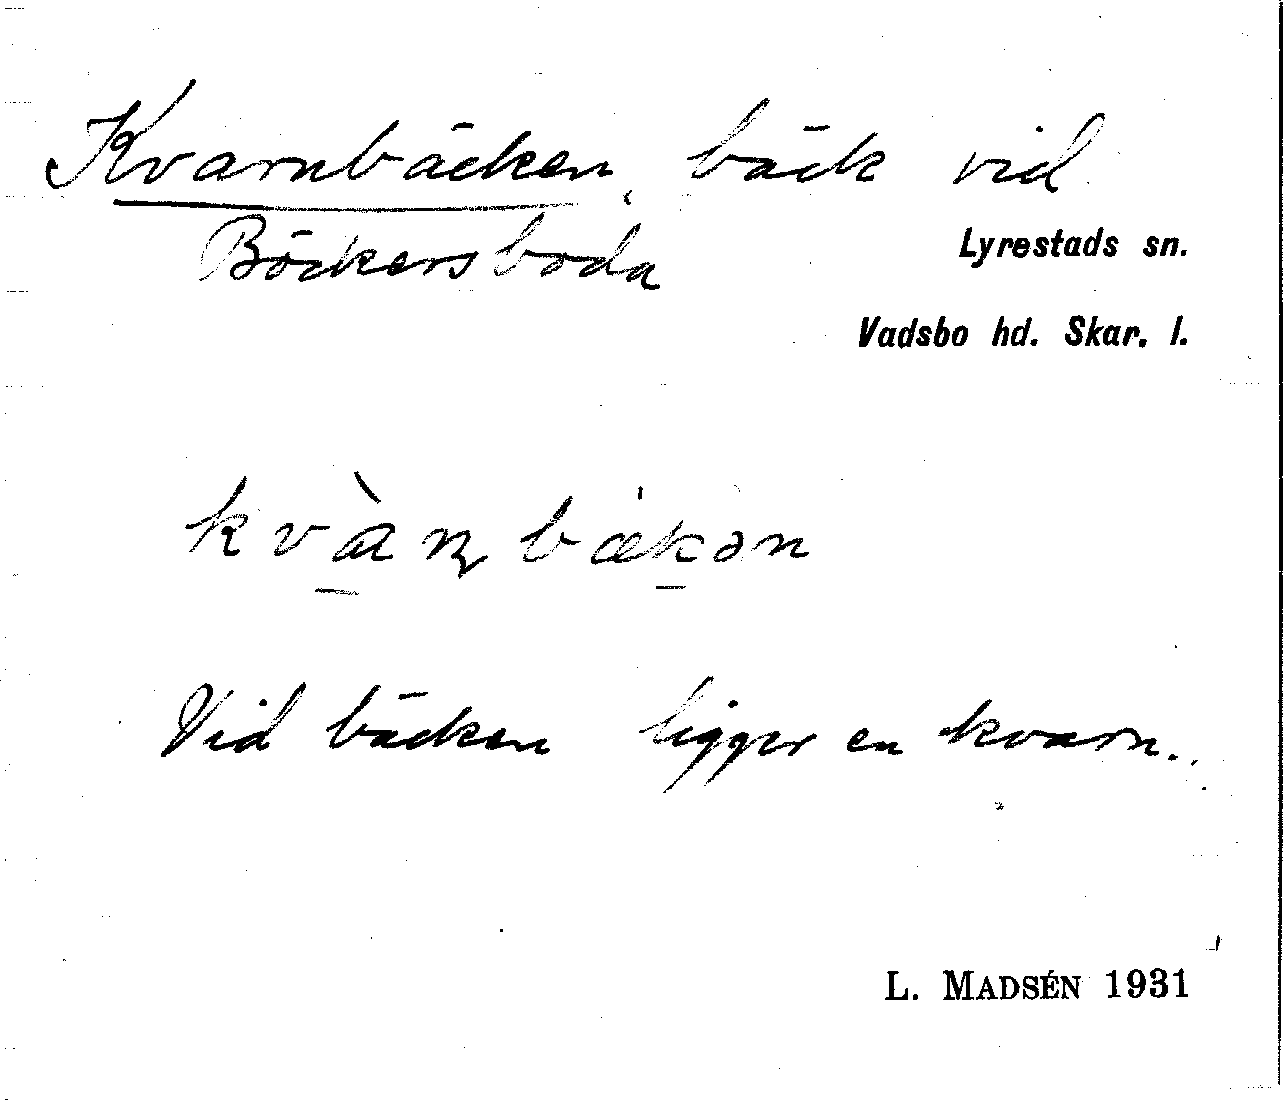 Kvarnbäcken, bäck vid
Böckersboda
Lyrestads sn.
Vadsbo hd. Skar. l.
kvànbækən
Vid bäcken ligger en kvarn.
L. MADSÉN 1931